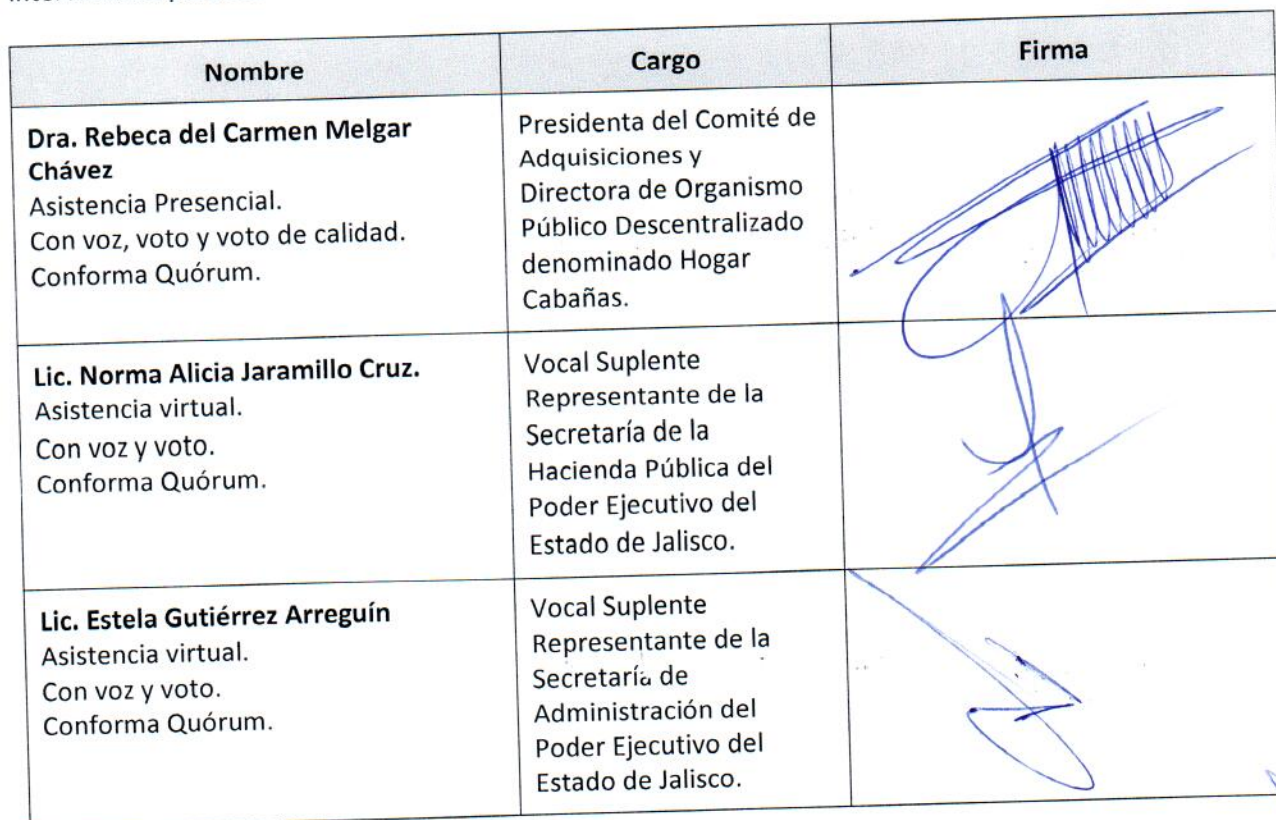 Nombre Cargo Firma
Dra. Rebeca del Carmen Melgar
Chávez
Asistencia Presencial.
Con voz, voto y voto de calidad.
Conforma Quórum.
Presidenta del Comité de
Adquisiciones y
Directora de Organismo
Público Descentralizado
denominado Hogar
Cabañas.
Lic. Norma Alicia Jaramillo Cruz.
Asistencia virtual.
Con voz y voto.
Conforma Quórum.
Vocal Suplente
Representante de la
Secretaría de la
Hacienda Pública del
Poder Ejecutivo del
Estado de Jalisco.
Lic. Estela Gutiérrez Arreguín
Asistencia virtual.
Con voz y voto.
Conforma Quórum.
Vocal Suplente
Representante de la
Secretaría de
Administración del
Poder Ejecutivo del
Estado de Jalisco.